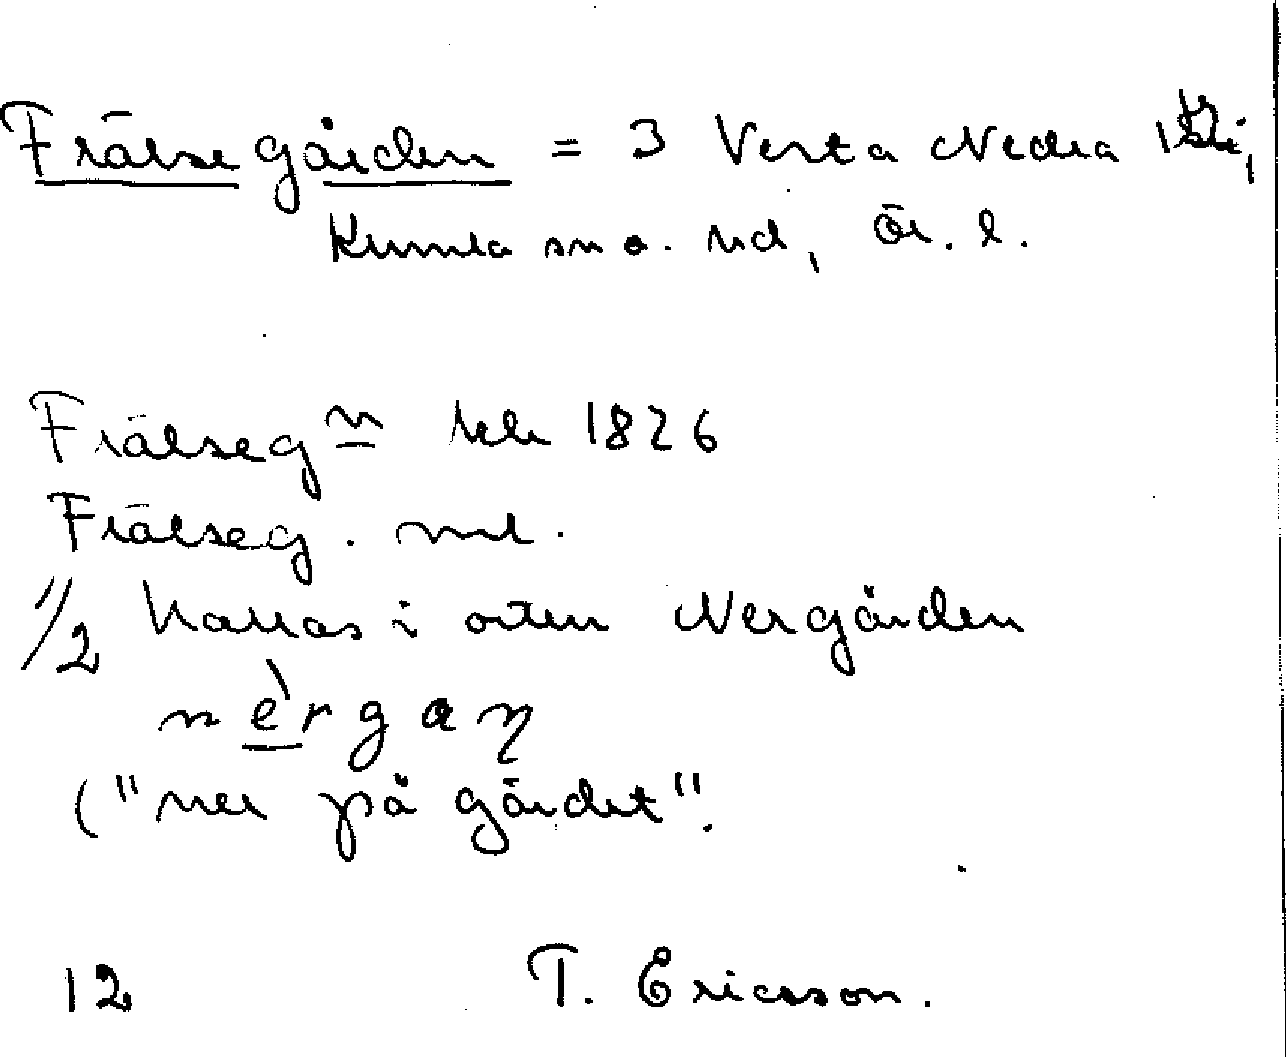 Frälsegården = 3 Versta Nedra
Kumla sn o. hd, Ör. l.
Frälsegⁿ 1826
Frälseg.
1/2 kallas i orten Nergården
nèrgaɳ
("ner på gärdet".
12 T. Ericsson.